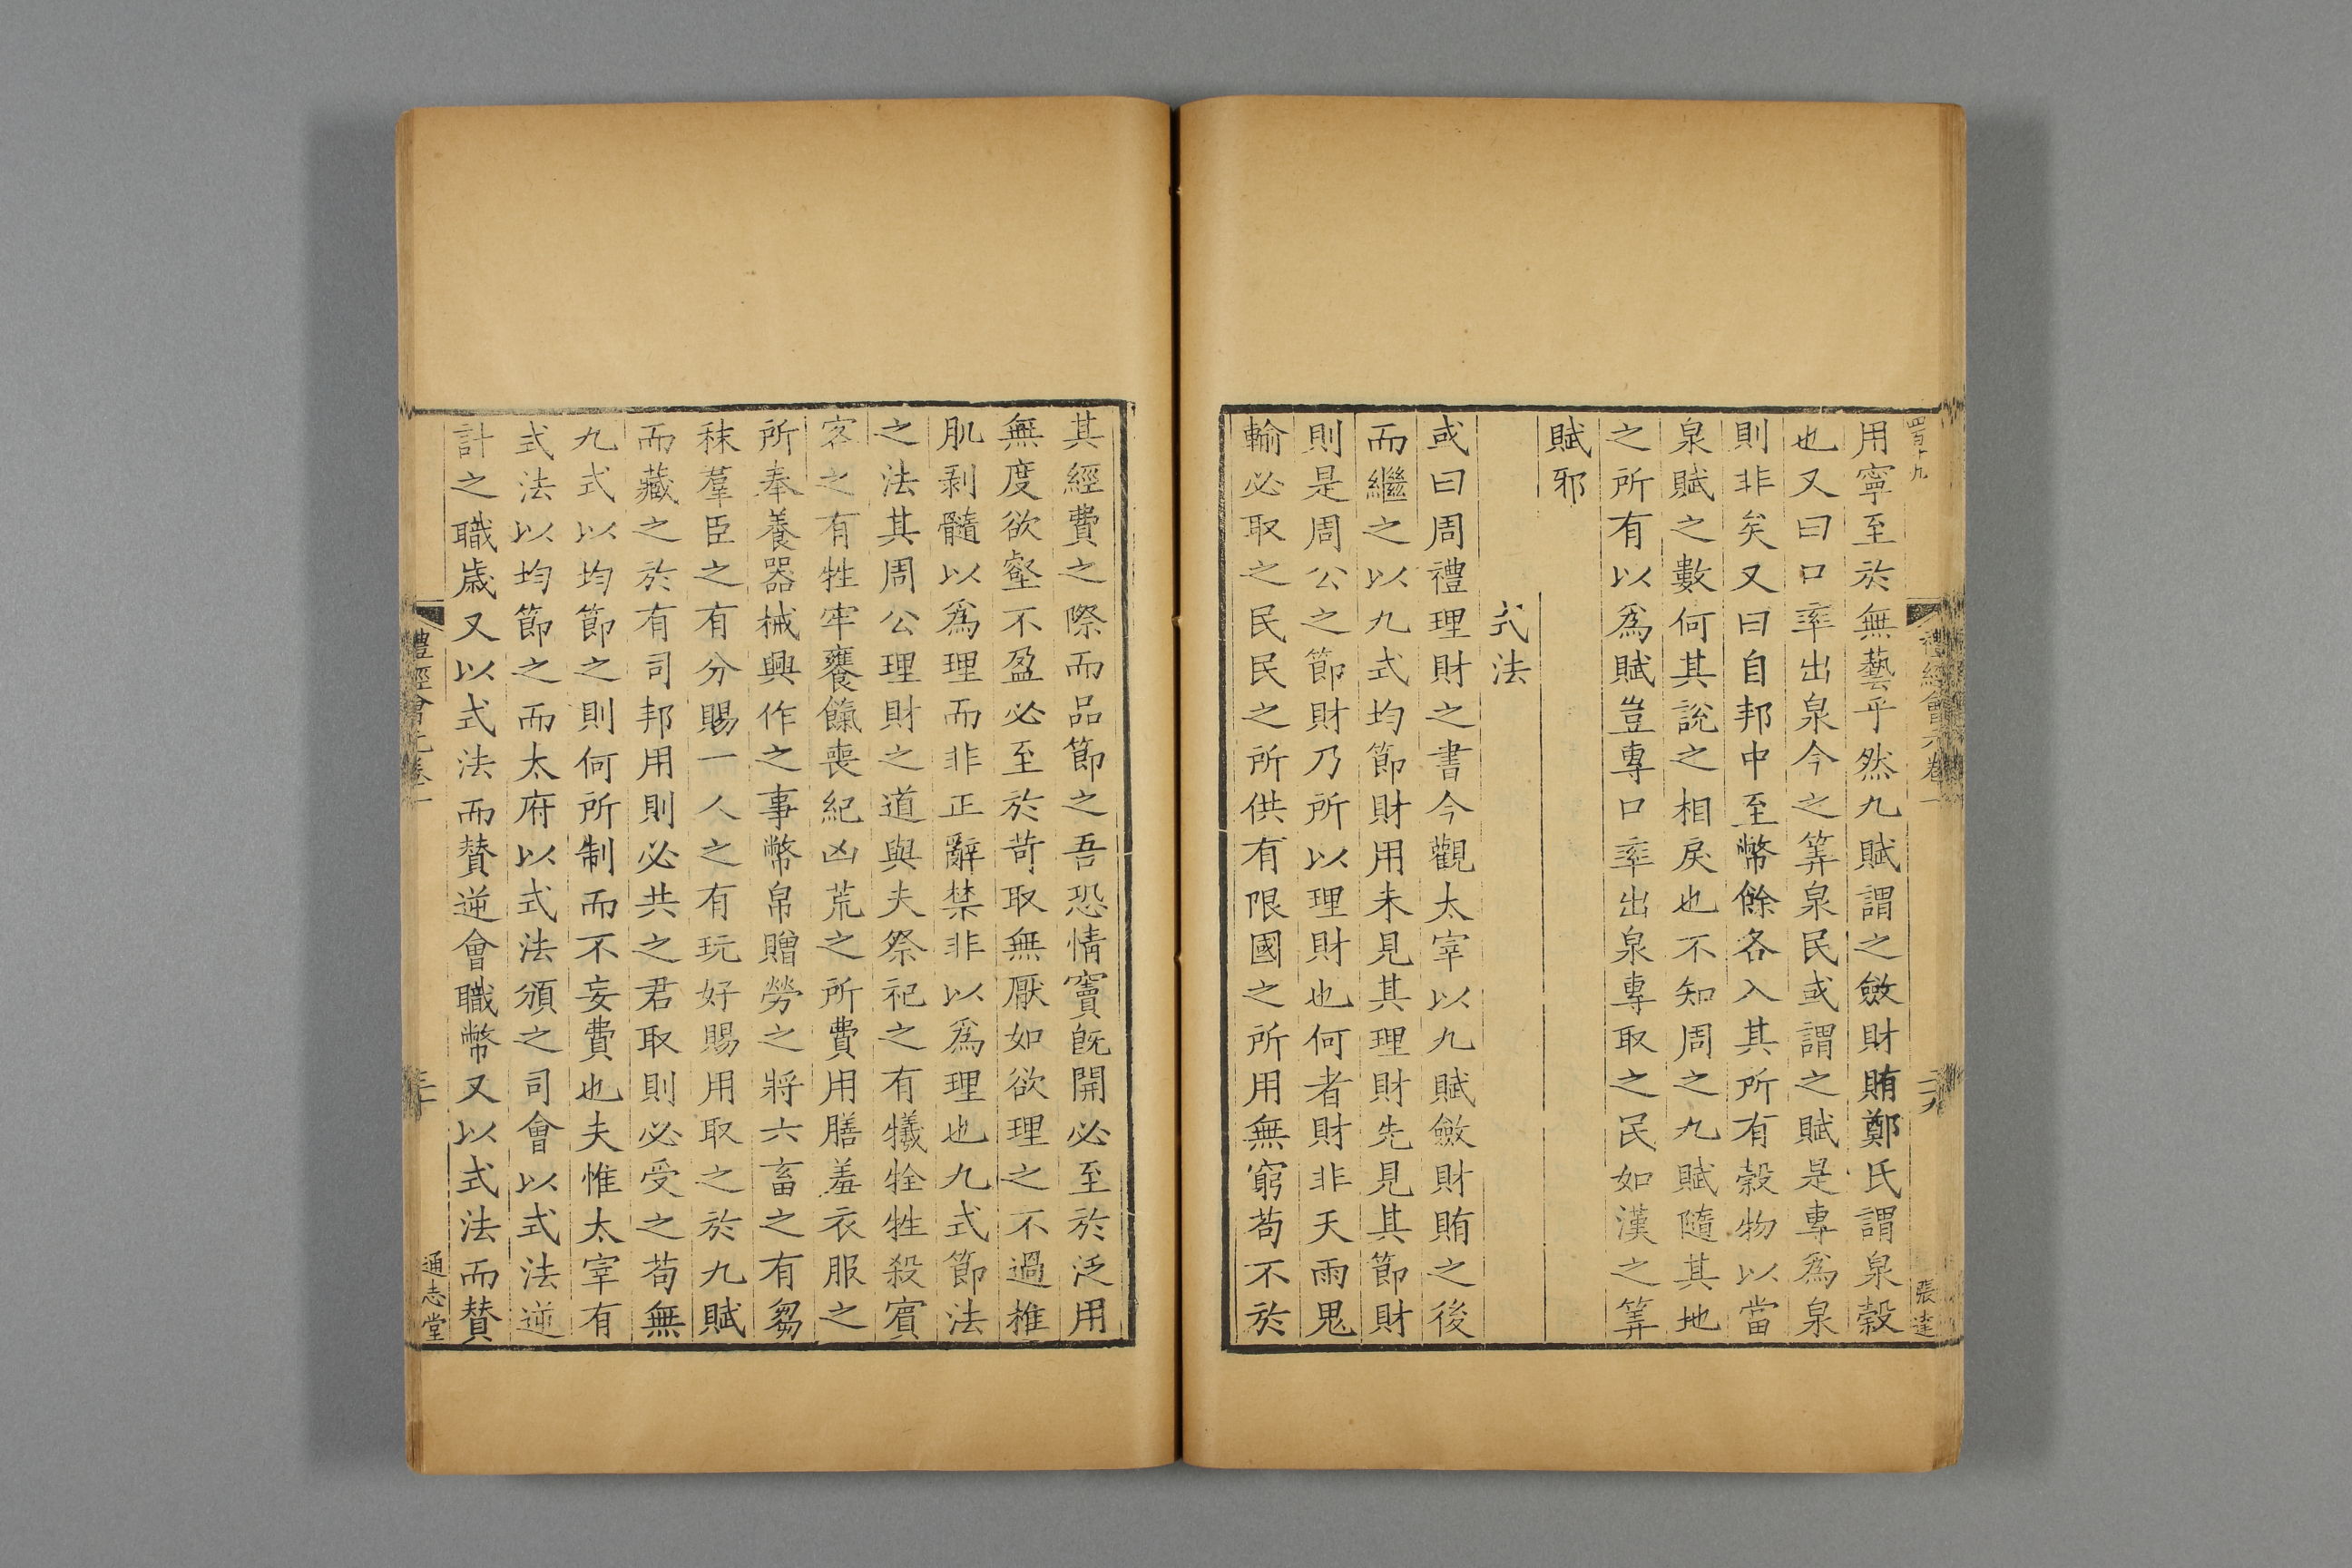 四百十九
禮經會元卷一
二九
張達
用寧至於無藝乎然九賦謂之斂財賄鄭氏謂泉穀
也又曰口率出泉今之筭泉民或謂之賦是專爲泉
則非矣又曰自邦中至幣餘各入其所有穀物以當
泉賦之數何其說之相戾也不知周之九賦隨其地
之所有以爲賦豈專口率出泉專取之民如漢之筭
賦邪
式法
或曰周禮理財之書今觀太宰以九賦斂財賄之後
而繼之以九式均節財用未見其理財先見其節財
則是周公之節財乃所以理財也何者財非天雨鬼
輸必取之民民之所供有限國之所用無窮苟不於
其經費之際而品節之吾恐情竇旣開必至於泛用
無度欲壑不盈必至於苛取無厭如欲理之不過椎
肌剥髓以爲理而非正辭禁非以爲理也九式節法
之法其周公理財之道與夫祭祀之有犧牷牲殺賓
客之有牲牢饔餼喪紀凶荒之所費用膳羞衣服之
所奉養器械興作之事幣帛贈勞之將六畜之有芻
秣羣臣之有分賜一人之有玩好賜用取之於九賦
而藏之於有司邦用則必共之君取則必受之苟無
九式以均節之則何所制而不妄費也夫惟太宰有
式法以均節之而太府以式法頒之司會以式法逆
計之職歲又以式法而賛逆會職幣又以式法而賛
禮經會元卷一
三十
通志堂